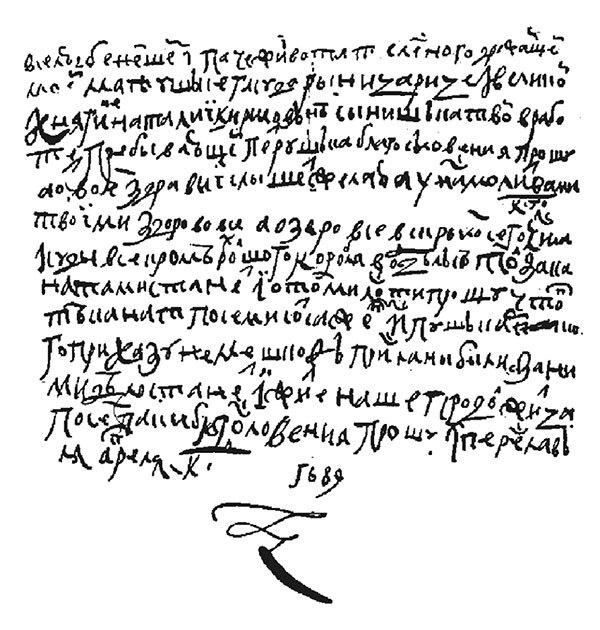 вселюбезнейшей и паче живота телесного дражайшей
моей матушьке гасударыни царице и великой
княгине наталии кириловне сынишька твой в рабо
те пребывающей петрушька благословения прошу
а о твоем здравии слышеть желаю а у нас молитвами
твоими здорово все а озеро все вскрылось сего 20 числа
и суды все кромъ большого корабля в отделкъ только за кана
натами станет и о том милости прошу чтоб
те канаты по семисот сажен ис пушъкарског
го приказу не мешков присланы были а за ни
ми дело станет и житье наше продолжитца
по сем паки благословения прошу ис переславъ
ля апреля к
1689